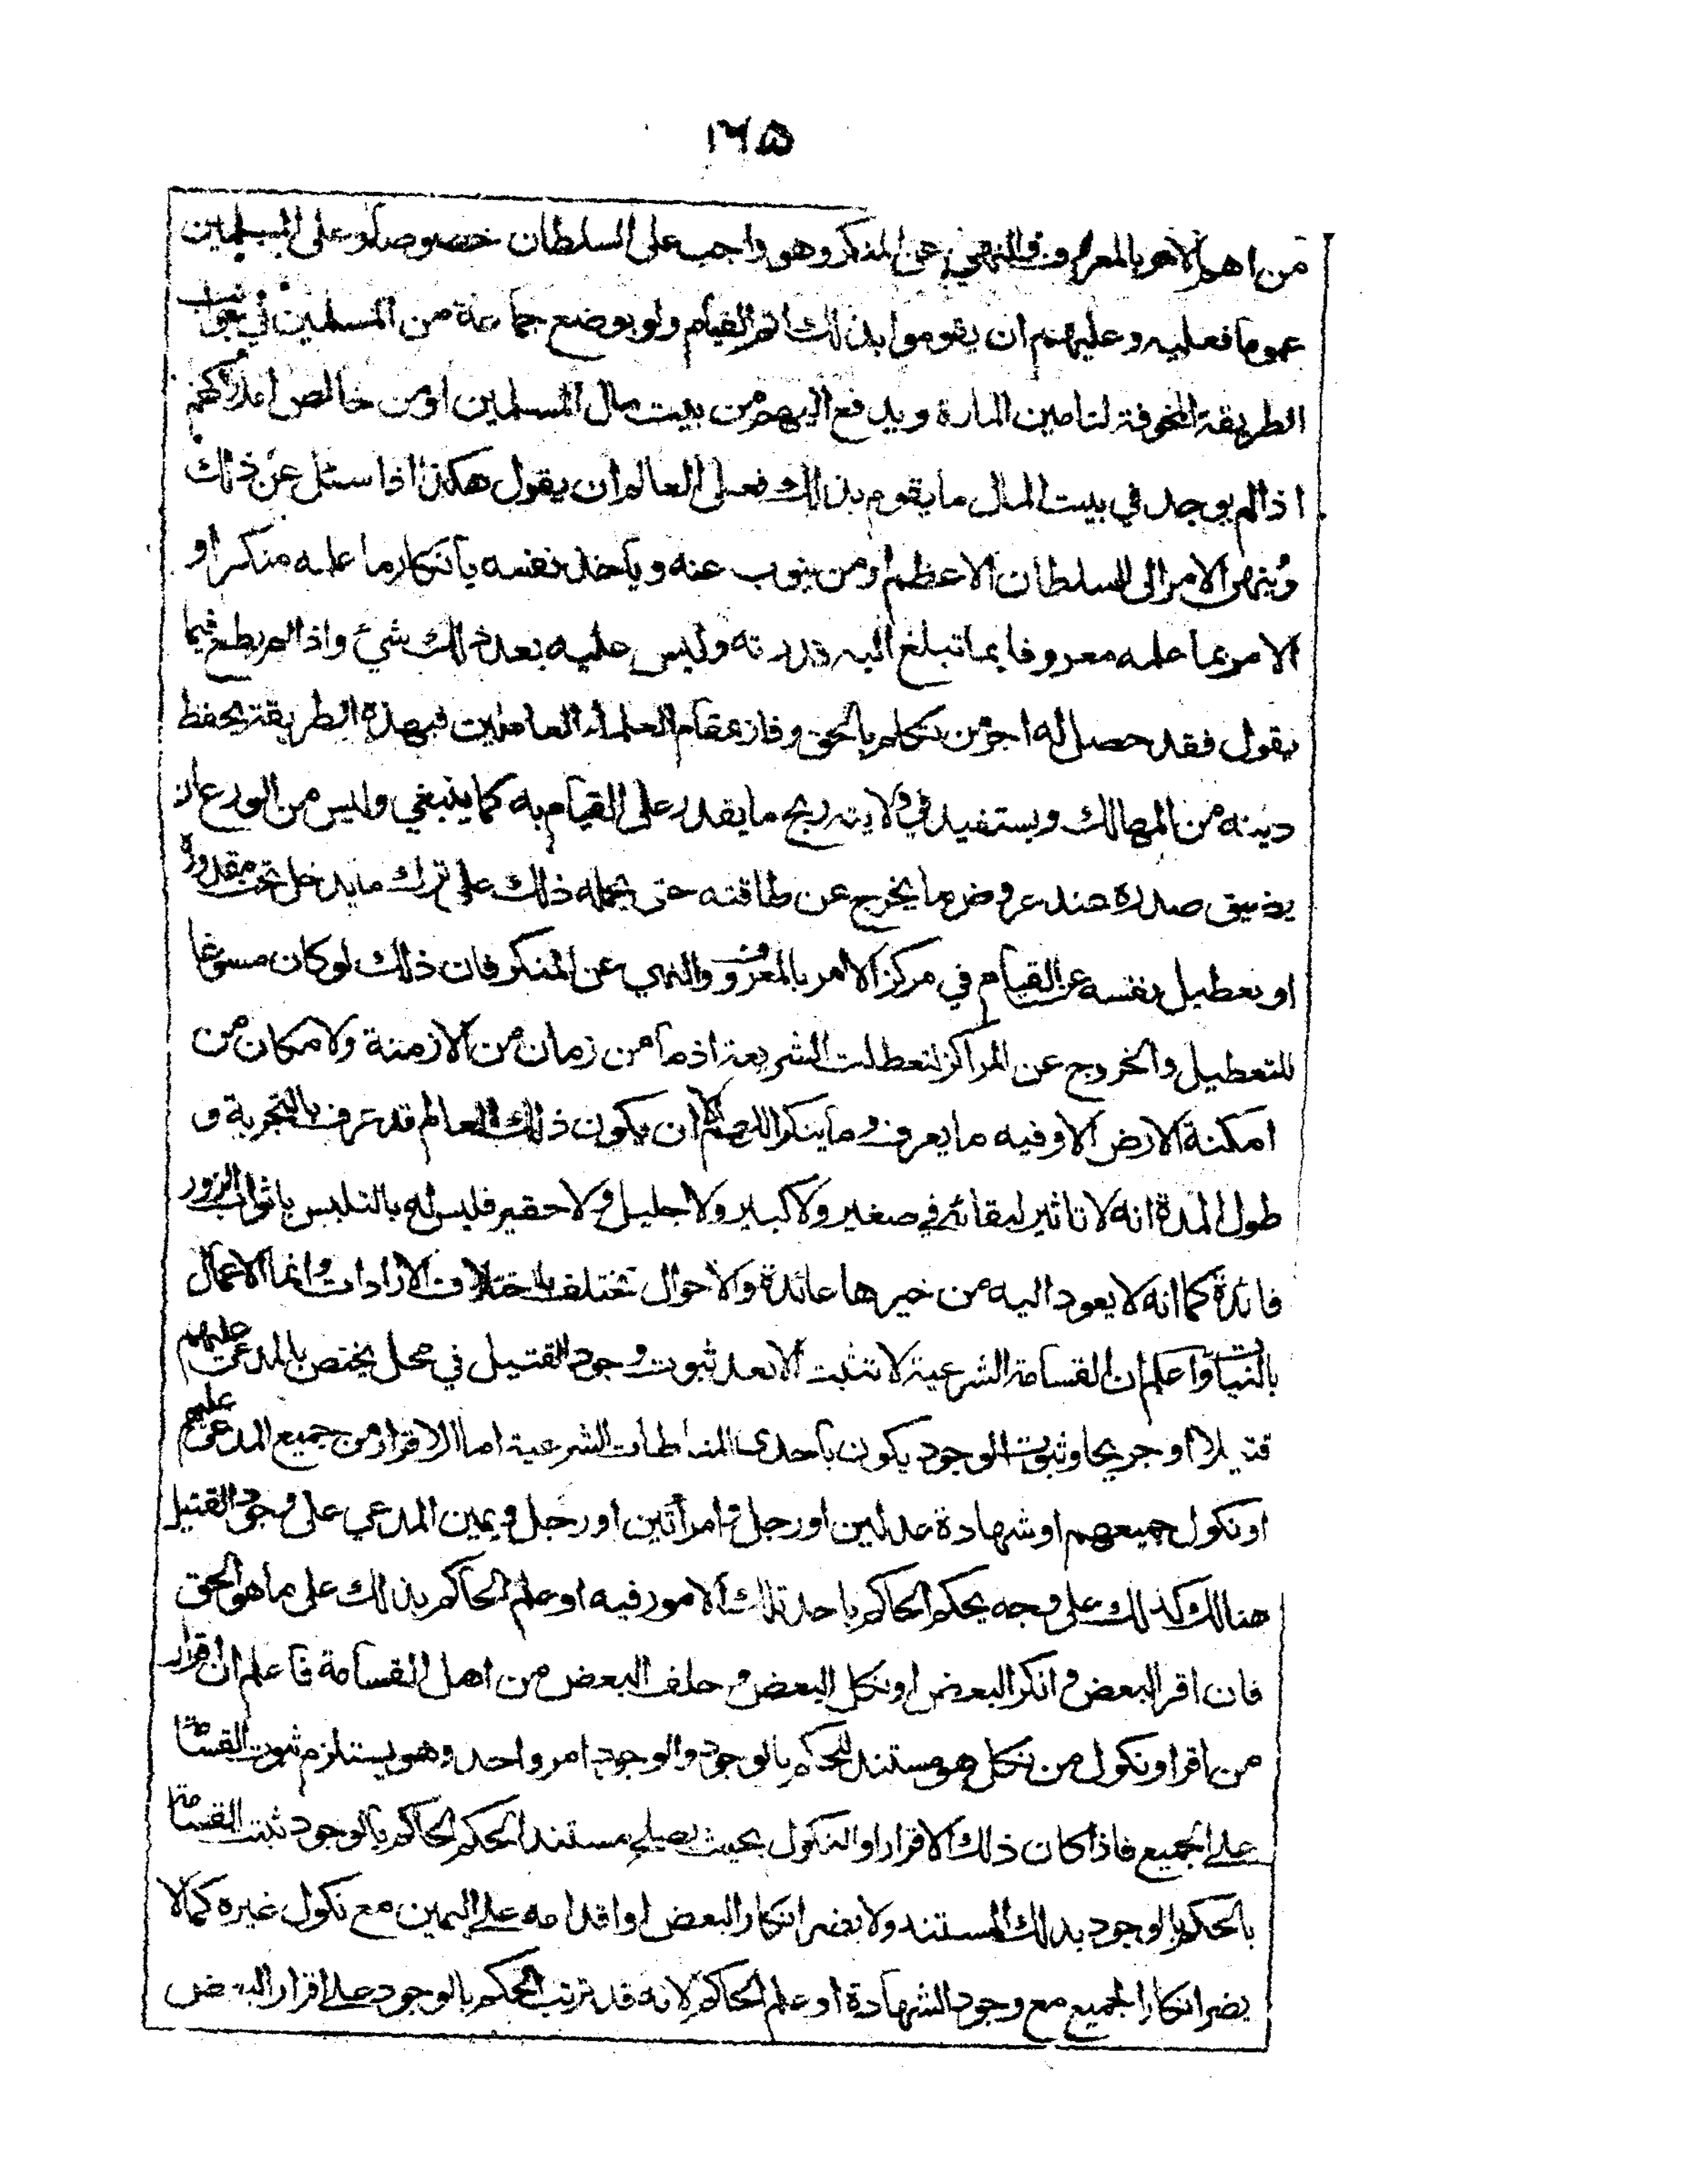 ١٦٥
من اهم الامر بالمعروف والنهي عن المنكر وهو واجب على السلطان خصوصا وعلى المسلمين
عموما فعليه وعليهم ان يقوموا بذلك اتم القيام ولو بوضع جماعة من المسلمين في جوانب
الطريقة المخوفة لتامين المارة ويدفع اليهم من بيت مال المسلمين او من خالص املاكهم
اذا لم يوجد في بيت المال ما يقوم بذلك فعلى العالم ان يقول هكذا اذا سئل عن ذلك
وينهى الامر الى السلطان الاعظم او من ينوب عنه وياخذ نفسه بانكار ما علمه منكرا و
الامر بما علمه معروفا بما تبلغ اليه قدرته وليس عليه بعد ذلك شيء واذا لم يطع فيما
يقول فقد حصل له اجر من تكلم بالحق وفاز بمقام العلماء العاملين فبهذه الطريقة يحفظ
دينه من المهالك ويستفيد في ولايته ربح ما يقدر على القيام به كما ينبغي وليس من الورع ان
يضيق صدره عند عروض ما يخرج عن طاقته حتى يحمله ذلك على ترك ما يدخل تحت مقدوره
او يعطيل نفسه عن القيام في مركز الامر بالمعروف والنهي عن المنكر فان ذلك لو كان مسوغا
للتعطيل والخروج عن المراكز لتعطلت الشريعة اذ ما من زمان من الازمنة ولا مكان من
امكنة الارض الا وفيه ما يعرف وما ينكر اللهم الا ان يكون ذلك العالم قد عرف بالتجربة و
طول المدة انه لا تاثير لبقائه في صغير ولا كبير ولا جليل ولا حقير فليس له بالتلبس باثواب الزور
فائدة كما انه لا يعود اليه من خيرها عائدة والاحوال تختلف باختلاف الارادات وانما الاعمال
بالنيات واعلم ان القسامة الشرعية لا تثبت الا بعد ثبوت وجود القتيل في محل يختص بالمدعى عليهم
قتيلا او جريحا وثبوت الوجود يكون باحدى المناطات الشرعية اما الاقرار من جميع المدعى عليهم
او نكول جميعهم او شهادة عدلين او رجل وامرأتين او رجل ويمين المدعي على وجود القتيل
هنالك كذلك على وجه يحكم الحاكم باحد تلك الامور فيه او علم الحاكم بذلك على ما هو الحق
فان اقر البعض وانكر البعض او نكل البعض وحلف البعض من اهل القسامة فاعلم ان اقرار
من اقر او نكول من نكل هو مستند للحكم بالوجود والوجود امر واحد وهو يستلزم ثبوت القسامة
على الجميع فاذا كان ذلك الاقرار او النكول بحيث يصلح مستندا لحكم الحاكم بالوجود ثبت القسامة
بالحكم بالوجود بذلك المستند ولا يضر انكار البعض او اقدامه على اليمين مع نكول غيره كما لا
يضر انكار الجميع مع وجود الشهادة او علم الحاكم لانه قد ترتب الحكم بالوجود على اقرار البعض